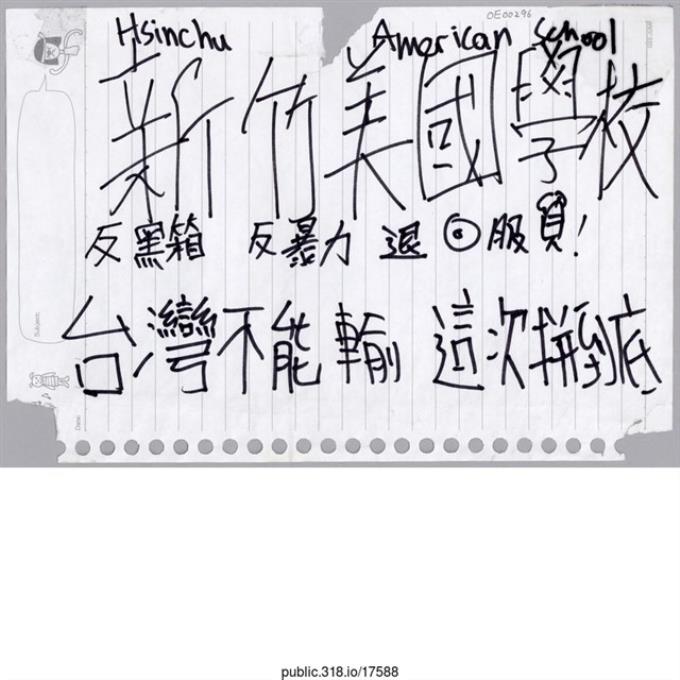 OE00296
Hsinchu American School
新竹美國學校
反黑箱 反暴力 退回服貿!
台灣不能輸 這次拼到底
Subject:
Date:
public.318.io/17588